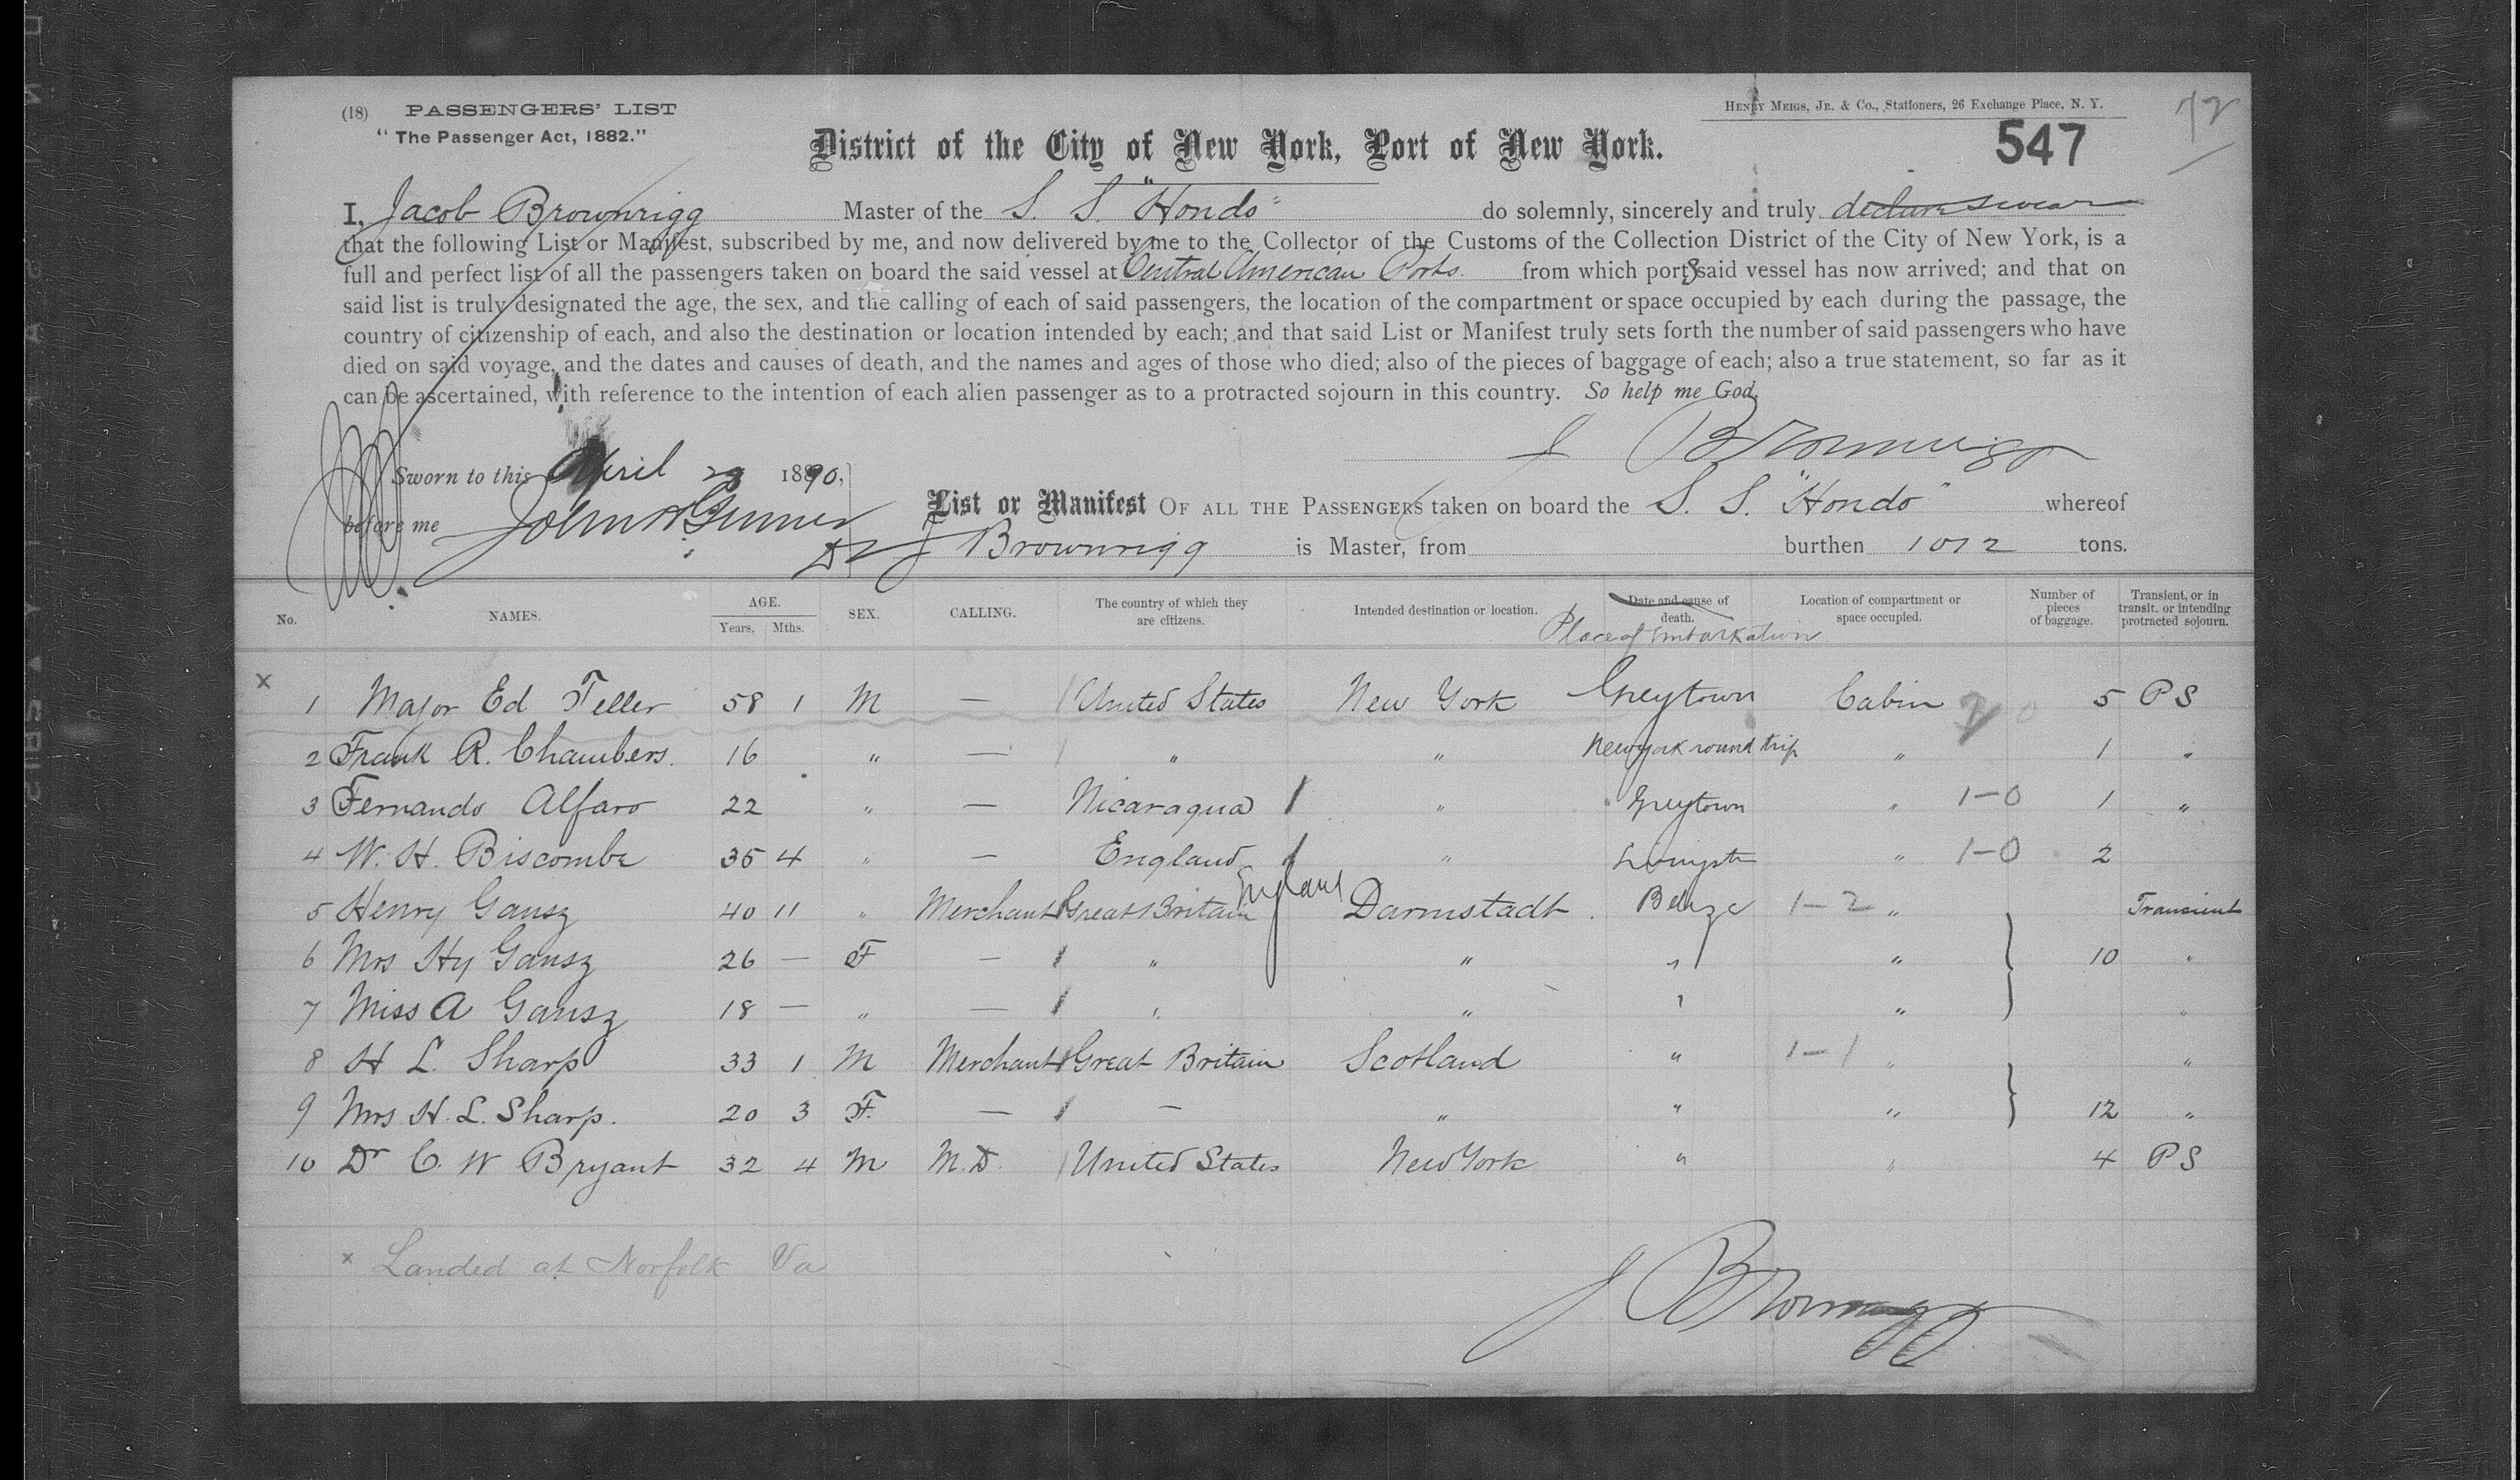 (18) PASSENGERS' LIST
"The Passenger Act, 1882."
HENRY MEIGS, JR. & CO., Stationers, 26 Exchange Place, N. Y.
72
547
District of the City of New York, Port of New York.
I, Jacob Brownrigg Master of the S. S. "Hondo" do solemnly, sincerely and truly declare swear
that the following List or Manifest, subscribed by me, and now delivered by me to the Collector of the Customs of the Collection District of the City of New York, is a
full and perfect list of all the passengers taken on board the said vessel at Central American Ports. from which ports said vessel has now arrived; and that on
said list is truly designated the age, the sex, and the calling of each of said passengers, the location of the compartment or space occupied by each during the passage, the
country of citizenship of each, and also the destination or location intended by each; and that said List or Manifest truly sets forth the number of said passengers who have
died on said voyage, and the dates and causes of death, and the names and ages of those who died; also of the pieces of baggage of each; also a true statement, so far as it
can be ascertained, with reference to the intention of each alien passenger as to a protracted sojourn in this country. So help me God.
J Brownrigg
Sworn to this April 23 1890,
before me John
List or Manifest OF ALL THE PASSENGERS taken on board the S. S. "Hondo" whereof
J Brownrigg is Master, from burthen 1072 tons.
No. NAMES. AGE. Years. Mths. SEX. CALLING. The country of which they are citizens. Intended destination or location. Date and cause of death. Place of Embarkation Location of compartment or space occupied. Number of pieces of baggage. Transient, or in transit, or intending protracted sojourn.
x 1 Major Ed Teller 58 1 M — United States New York Greytown Cabin 5 P S
2 Frank R. Chambers. 16 " — " " New york round trip " 1 "
3 Fernando Alfaro 22 " — Nicaragua " Greytown " 1-0 1 "
4 W. H. Biscombe 35 4 " — England " " 1-0 2
5 Henry Gansz 40 11 " Merchant Great Britain England Darmstadt. Belize 1-2 " Transient
6 Mrs Hy Gansz 26 — F — " " " " 10 "
7 Miss A Gansz 18 — " — " " " " "
8 H L. Sharp 33 1 M Merchant Great Britain Scotland " 1-1 " "
9 Mrs H. L. Sharp. 20 3 F. — — " " " 12 "
10 Dr C. W Bryant 32 4 M M.D. United States New York " " 4 P S
x Landed at Norfolk Va
J Brownrigg